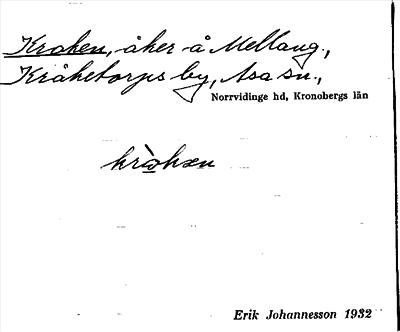 Kroken, åker å Mellang.,
Kråketorps by, Asa sn.,
Norrvidinge hd, Kronobergs län
Erik Johannesson 1932